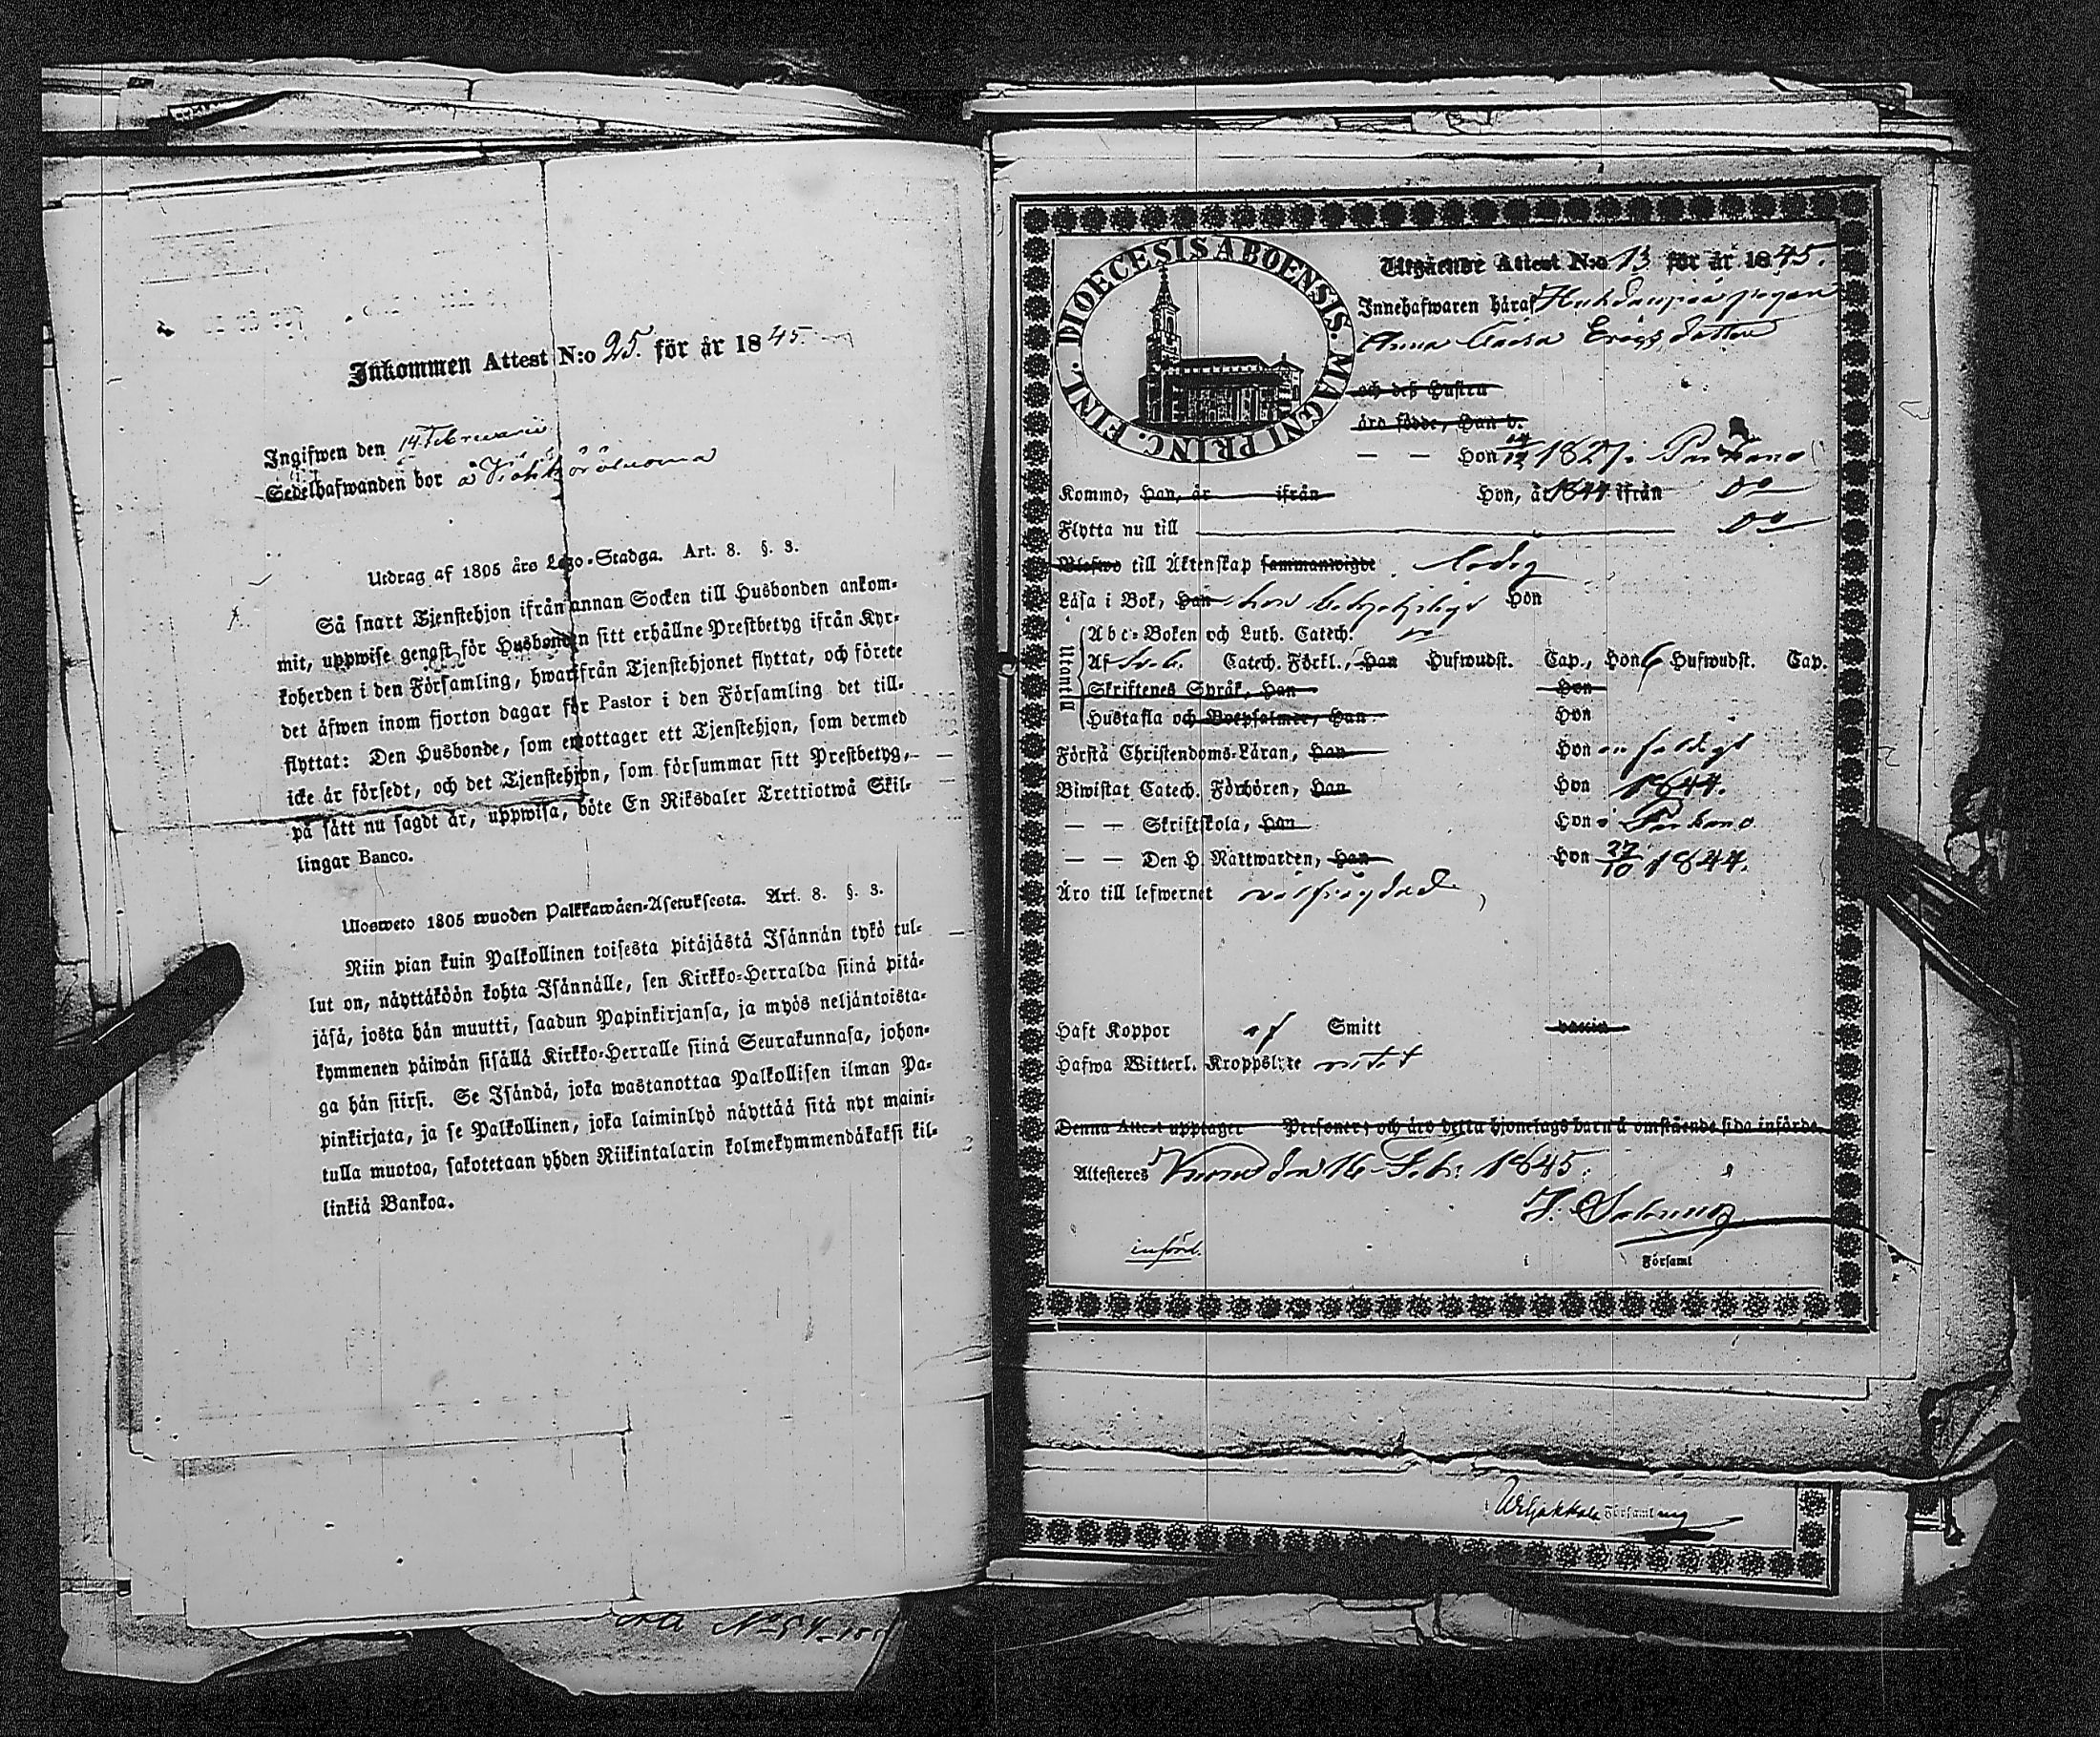 Inkommen Attest N:o 25. för år 1845.
Ingifwen den 14 Februarii
Sedelhafwanden bor å
Utdrag af 1805 års Lego-Stadga. Art. 8. §. 3.
Så snart Tjenstehjon ifrån annan Socken till Husbonden ankom-
mit, uppwise genast för Husbonden sitt erhållne Prestbetyg ifrån Kyr-
koherden i den Församling, hwarifrån Tjenstehjonet flyttat, och förete
det äfwen inom fjorton dagar för Pastor i den Församling det till-
flyttat: Den Husbonde, som emottager ett Tjenstehjon, som dermed
icke är försedt, och det Tjenstehjon, som försummar sitt Prestbetyg,
på sätt nu sagdt är, uppwisa, böte En Riksdaler Trettiotwå Skil-
lingar Banco.
Ulosweto 1805 wuoden Palkkawäen-Asetuksesta. Art. 8. §. 3.
Niin pian kuin Palkollinen toisesta pitäjästä Isännän tykö tul-
lut on, näyttäköön kohta Isännälle, sen Kirkko-Herralda siinä pitä-
jäsä, josta hän muutti, saadun Papinkirjansa, ja myös neljäntoista-
kymmenen päiwän sisällä Kirkko-Herralle siinä Seurakunnasa, johon-
ga hän siirsi. Se Isändä, joka wastanottaa Palkollisen ilman Pa-
pinkirjata, ja se Palkollinen, joka laiminlyö näyttää sitä nyt maini-
tulla muotoa, sakotetaan yhden Riikintalarin kolmekymmendäkaksi kil-
linkiä Bankoa.
N:o 54
DIOECESIS ABOENSIS. MAGNI PRINC. FINL.
Utgående Attest N:o 13 för år 1845.
Innehafwaren häraf pigan
Anna Erics dotter
och deß Hustru
äro födde, Han d.
— — Hon 1827 i Parkano
Kommo, Han, år ifrån Hon, år 1844 ifrån Do
Flytta nu till Do
Blefwo till Äktenskap sammanwigde. Ledig
Läsa i Bok, Han Hon
Utantill
Abc-Boken och Luth. Catech. Do
Af Sveb. Catech. Förkl., Han Hufwudst. Cap., Hon 6 Hufwudst. Cap.
Skriftenes Språk, Han Hon
Hustafla och Botpsalmer, Han Hon
Förstå Christendoms-Läran, Han Hon enfaldigt
Biwistat Catech. Förhören, Han Hon 1844.
— — Skriftskola, Han Hon i Parkano
— — Den H. Nattwarden, Han Hon 27/10 1844.
Äro till lefwernet välfrägdad
Haft Koppor af Smitt vaccin
Hafwa Witterl. Kroppslyte intet
Denna Attest upptager Personer, och äro detta hjonelags barn å omstående sida införde.
Attesteres den 16 Feb: 1845.
införd.
i Församl
Wiljakkala Församling